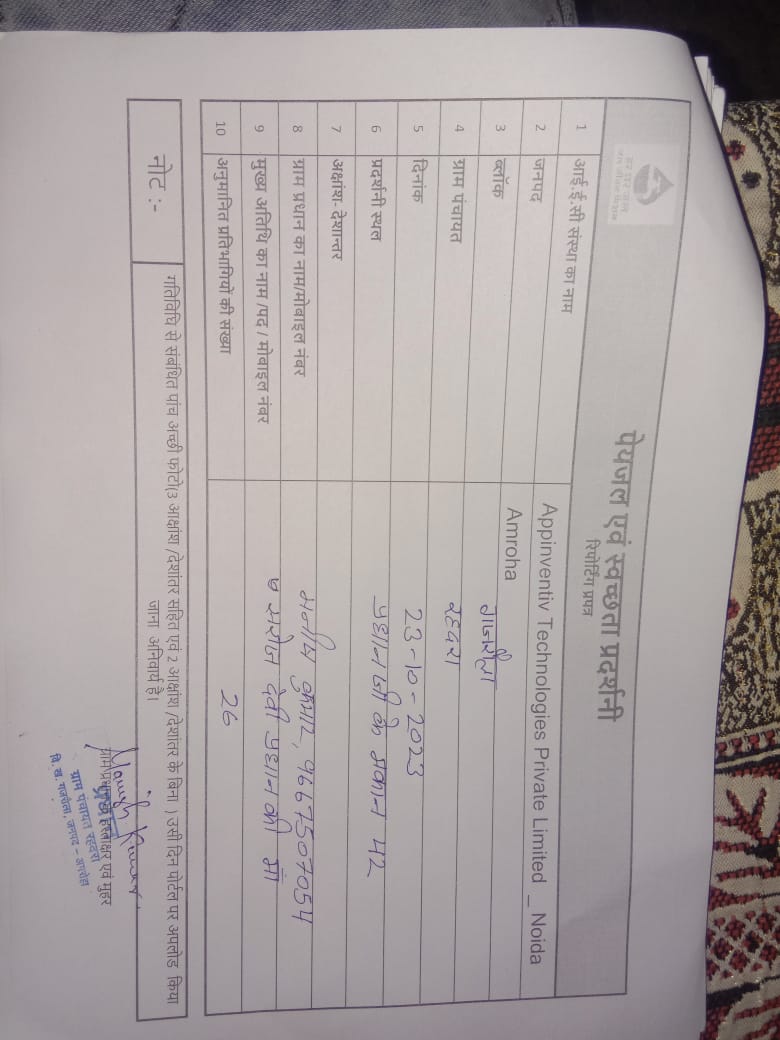 हर घर जल
जल जीवन मिशन
पेयजल एवं स्वच्छता प्रदर्शनी
रिपोर्टिंग प्रपत्र
1 आई.ई.सी संस्था का नाम Appinventiv Technologies Private Limited _ Noida
2 जनपद Amroha
3 ब्लॉक गजरौला
4 ग्राम पंचायत रहदरा
5 दिनांक 23-10-2023
6 प्रदर्शनी स्थल प्रधान जी के मकान पर
7 अक्षांश- देशान्तर
8 ग्राम प्रधान का नाम/मोबाइल नंबर मनीष कुमार, 9667507054
9 मुख्य अतिथि का नाम /पद / मोबाइल नंबर सरोज देवी प्रधान की माँ
10 अनुमानित प्रतिभागियों की संख्या 26
नोट :- गतिविधि से संबंधित पांच अच्छी फोटो(3 आक्षांष /देशांतर सहित एवं 2 आक्षांश /देशांतर के बिना ) उसी दिन पोर्टल पर अपलोड किया
जाना अनिवार्य है।
Manish Kumar
ग्राम प्रधान के हस्ताक्षर एवं मुहर
ग्राम पंचायत रहदरा
वि. ख. गजरौला, जनपद - अमरोहा